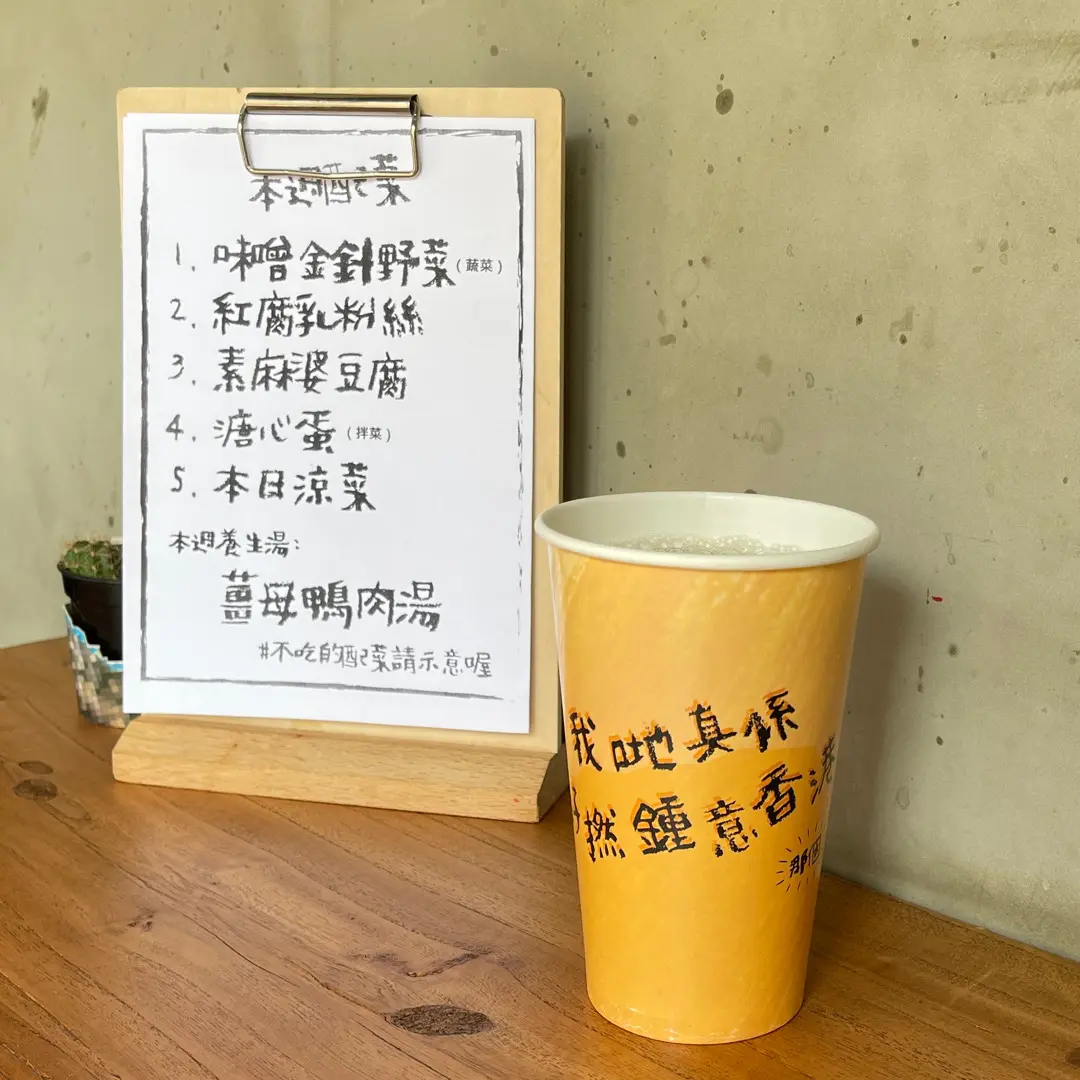 本週配菜
1. 味噌金針野菜（蔬菜）
2. 紅腐乳粉絲
3. 素麻婆豆腐
4. 溏心蛋（拌菜）
5. 本日涼菜
本週養生湯：
薑母鴨肉湯
#不吃的配菜請示意喔
我哋真係
好撚鍾意香港
那個